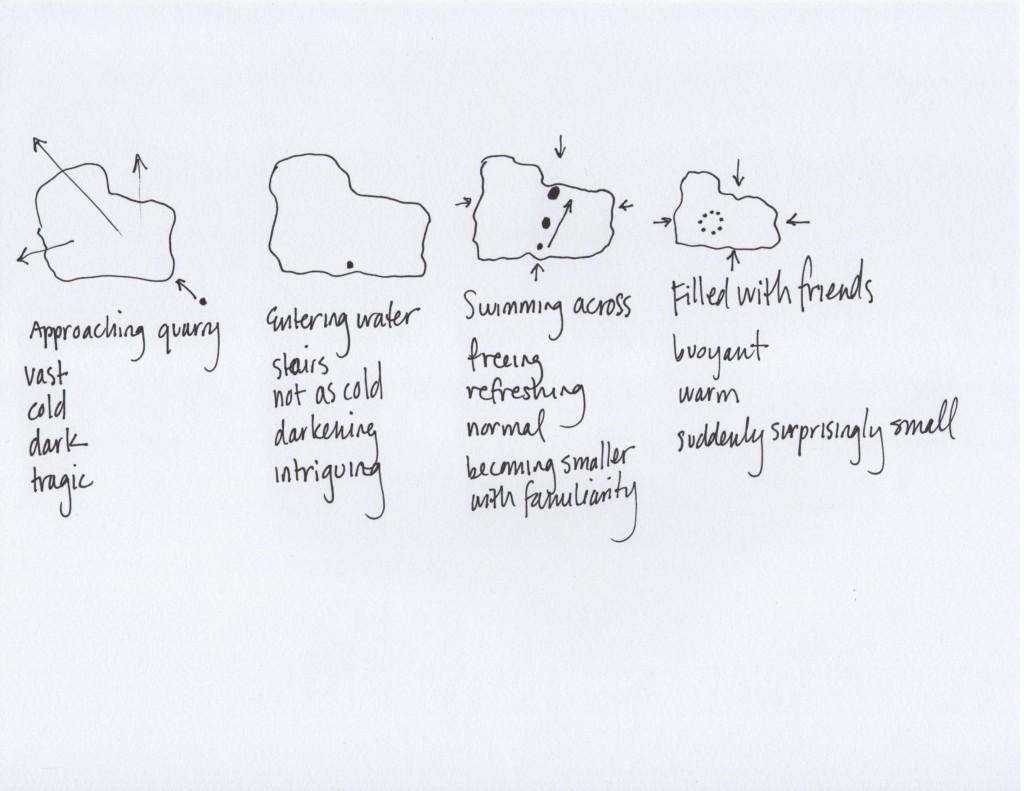 Approaching quarry
vast
cold
dark
tragic
Entering water
stairs
not as cold
darkening
intriguing
Swimming across
freeing
refreshing
normal
becoming smaller
with familiarity
Filled with friends
buoyant
warm
suddenly surprisingly small